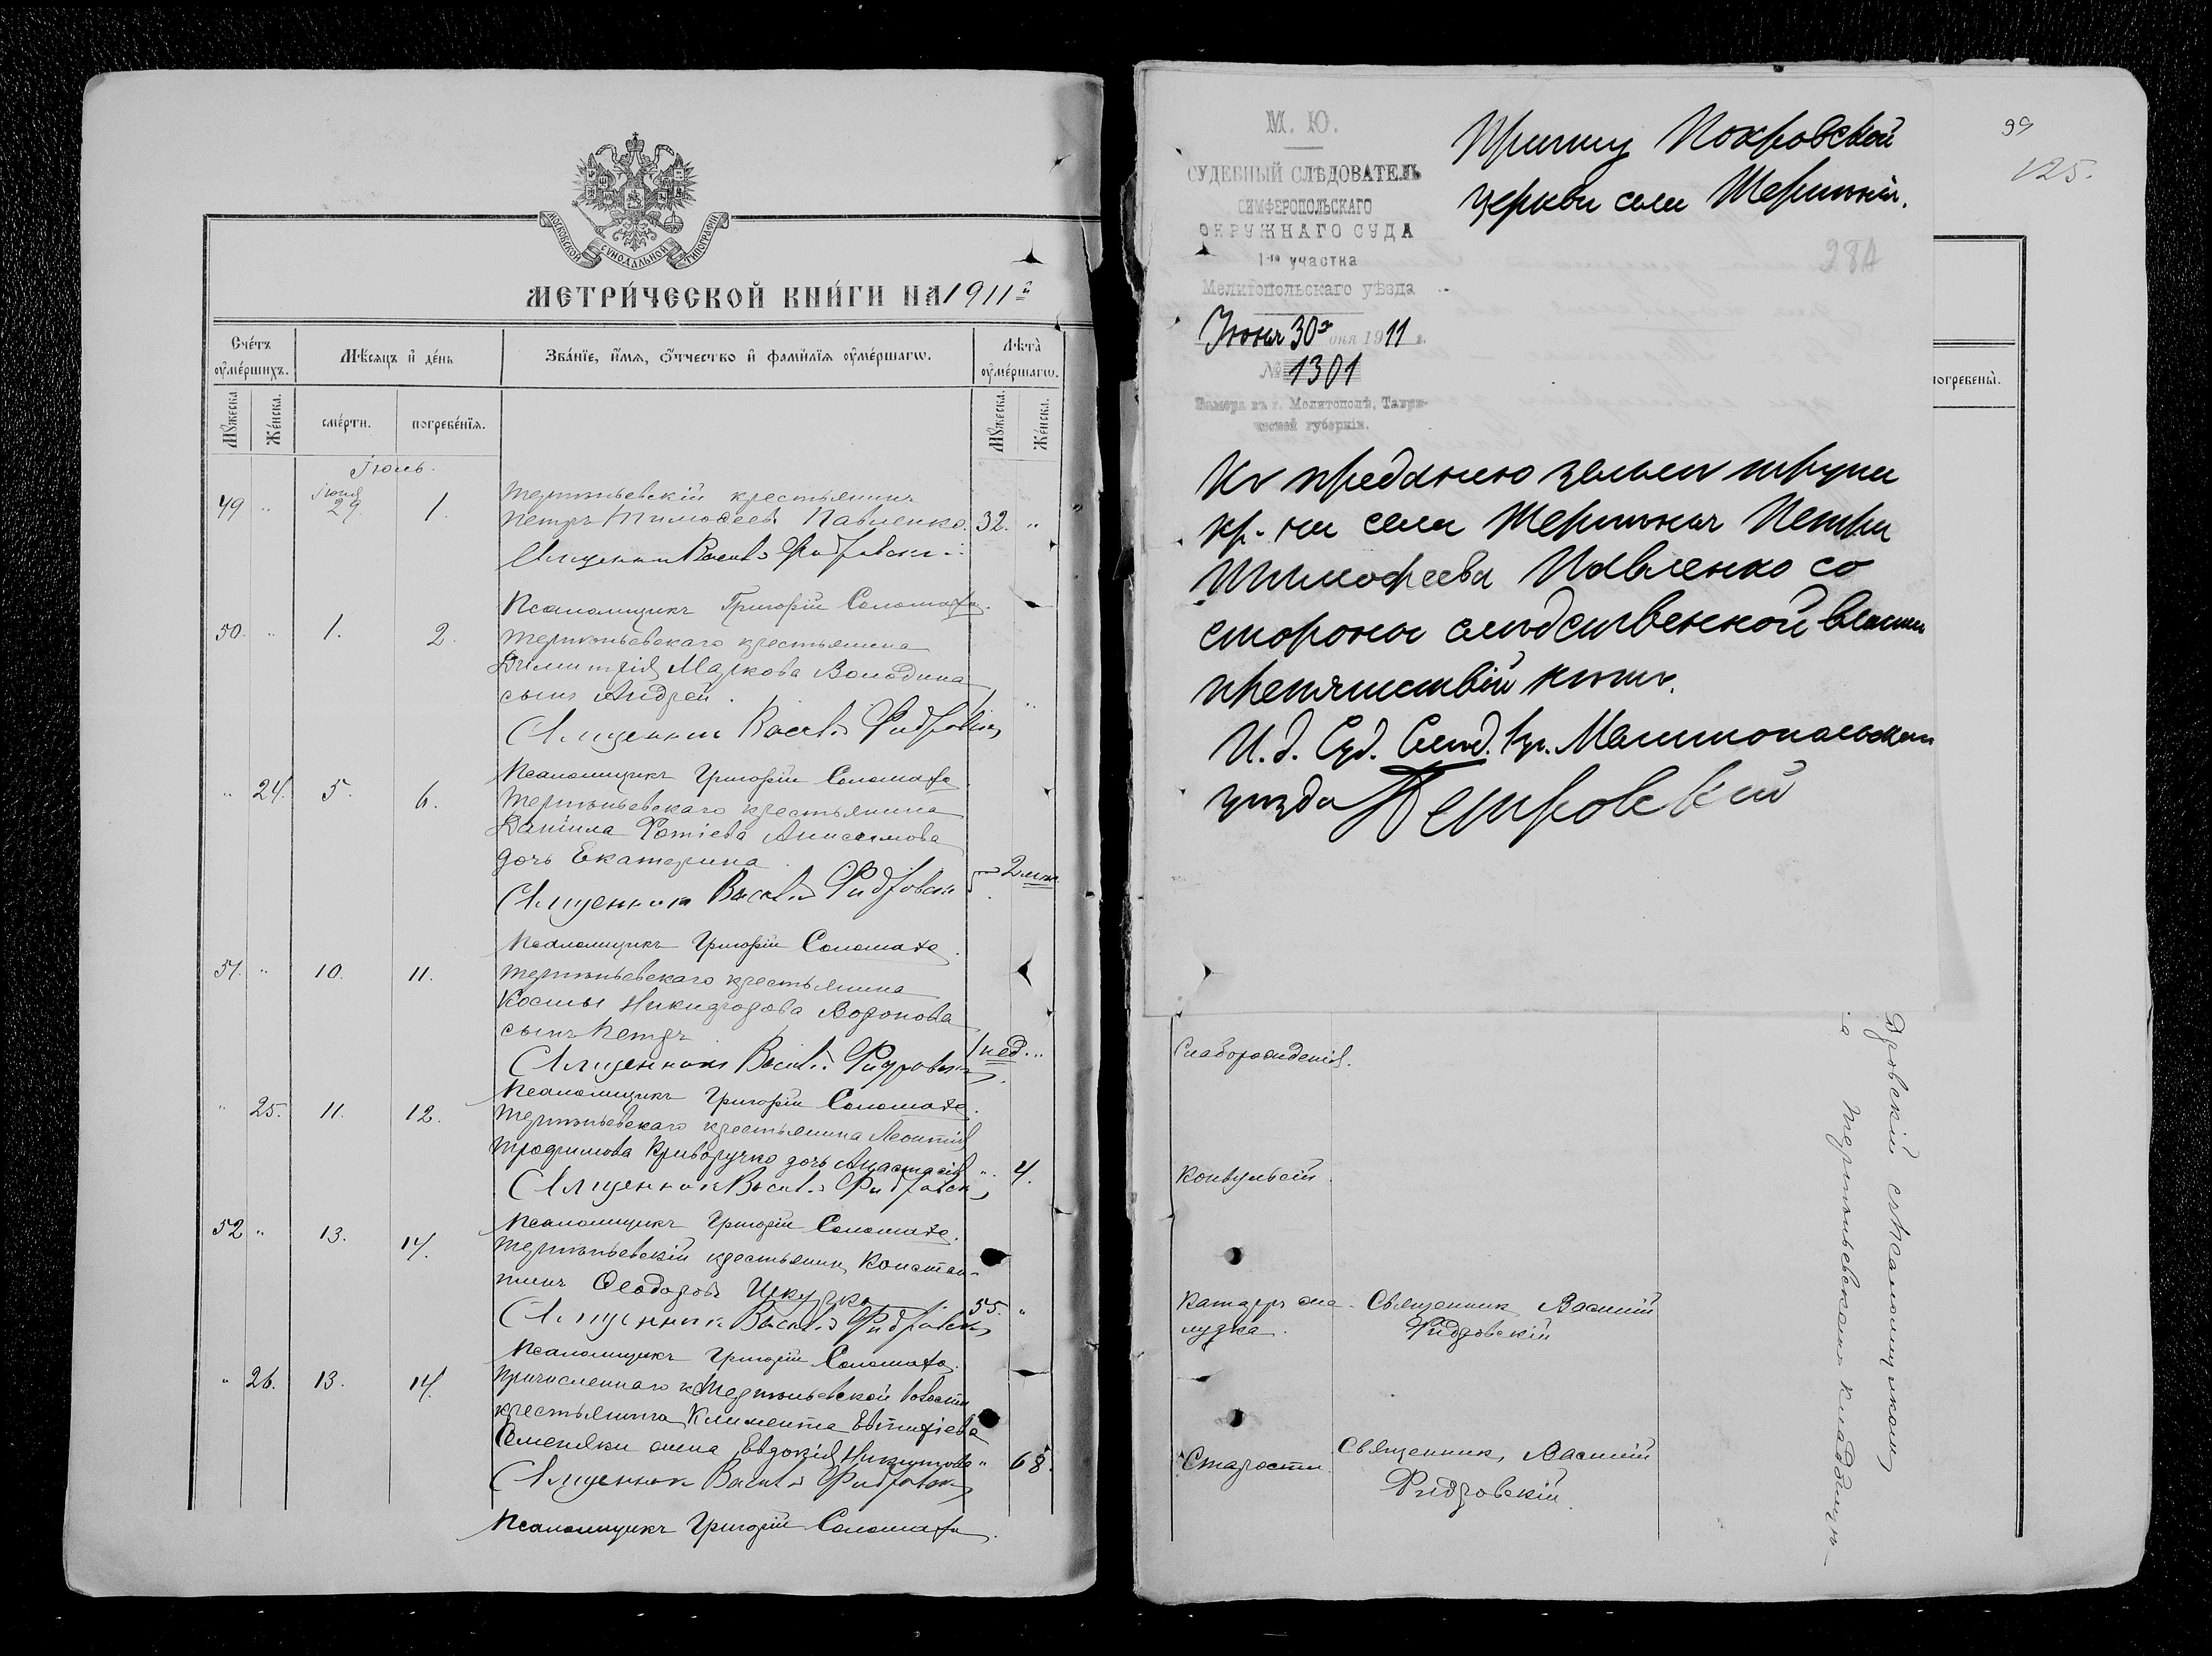 МОСКОВСКОЙ СУНОДАЛЬНОЙ ТИПОГРАФІИ
МЕТРИ́ЧЕСКОЙ КНИ́ГИ НА 1911 г.
Счетъ ѹмершихъ.
Мѣсяцъ и день
Званїе, имя, ѻтчество и фамилїя ѹмершагѡ.
Лѣта ѹмершагѡ.
Мꙋжеска.
Женска.
смерти.
погребенїя.
Мꙋжеска.
Женска.
Іюль.
49 " Іюня 29. 1. Терпѣньевскій крестьянинъ
Петръ Тимоѳеевъ Павленко. 32. "
Священникъ Василій Фидровскій
Псаломщикъ Григорій Соломаха.
50. " 1. 2. Терпѣньевскаго крестьянина
Димитрія Маркова Володина
сынъ Андрей.
Священникъ Василій Фидровскій
Псаломщикъ Григорій Соломаха.
" 24. 5. 6. Терпѣньевскаго крестьянина
Даніила Фотіева Анисимова
дочь Екатерина. 2 мѣс.
Священникъ Василій Фидровскій
Псаломщикъ Григорій Соломаха.
51. " 10. 11. Терпѣньевскаго крестьянина
Космы Никифорова Воронова
сынъ Петръ 1 нед. "
Священникъ Василій Фидровскій
Псаломщикъ Григорій Соломаха.
" 25. 11. 12. Терпѣньевскаго крестьянина Леонтія
Трофимова Криворучко дочь Анастасія " 4.
Священникъ Василій Фидровскій
Псаломщикъ Григорій Соломаха.
52 " 13. 14. Терпѣньевскій крестьянинъ Констан-
тинъ Ѳеодоровъ 55. "
Священникъ Василій Фидровскій
Псаломщикъ Григорій Соломаха.
" 26. 13. 14. Причисленнаго къ Терпѣньевской волости
крестьянина Климента Евтихіева
жена Евдокія Никитова " 68.
Священникъ Василій Фидровскій
Псаломщикъ Григорій Соломаха.
99
125.
98А
М. Ю.
СУДЕБНЫЙ СЛѢДОВАТЕЛЬ
СИМФЕРОПОЛЬСКАГО
ОКРУЖНАГО СУДА
1-го участка
Мелитопольскаго уѣзда
Іюня 30 дня 1911 г.
№ 1301
Камера въ г. Мелитополѣ, Таври-
ческой губерніи.
Причту Покровской
церкви села Терпѣнія.
Къ преданію землѣ трупа
кр-на села Терпѣнья Петра
Тимофеева Павленко со
стороны слѣдственной власти
препятствій нѣтъ.
И. д. Суд. Слѣд. 1 уч. Мелитопольскаго
уѣзда Петровскій
погребены.
Слаборожденія.
Конвульсій
Катарръ же-
лудка.
Священникъ Василій
Фидровскій
Старости
Священникъ Василій
Фидровскій.
дровскій съ псаломщикомъ
Терпѣньевскомъ кладбищѣ